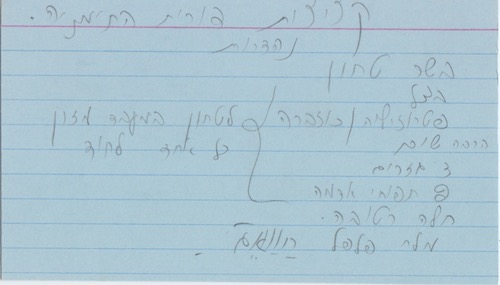 קציצות פורית התימניה.
נהדרות
בשר טחון
בצל
פטרוזיליה / כוזברה
הרבה שום
2 גזרים
תפוחי אדמה
חלה רטובה.
מלח פלפל
לטחון במעבד מזון
כל אחד לחוד